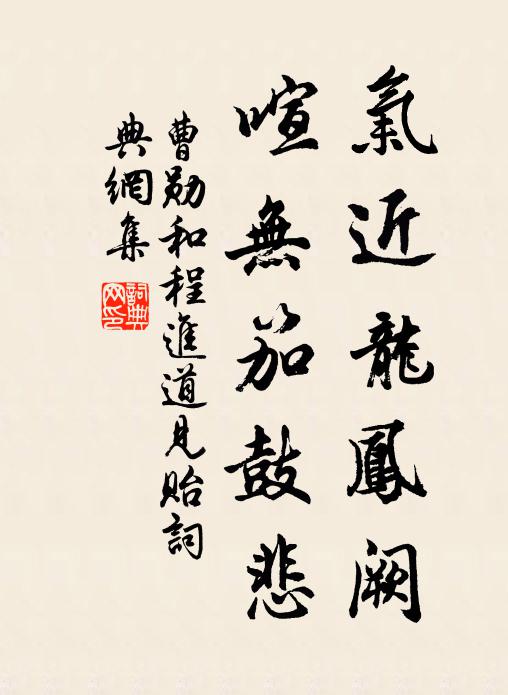 氣近龍鳳闕
喧無笳鼓悲
曹勛和程進道見貽詞
典網集
詞典网印